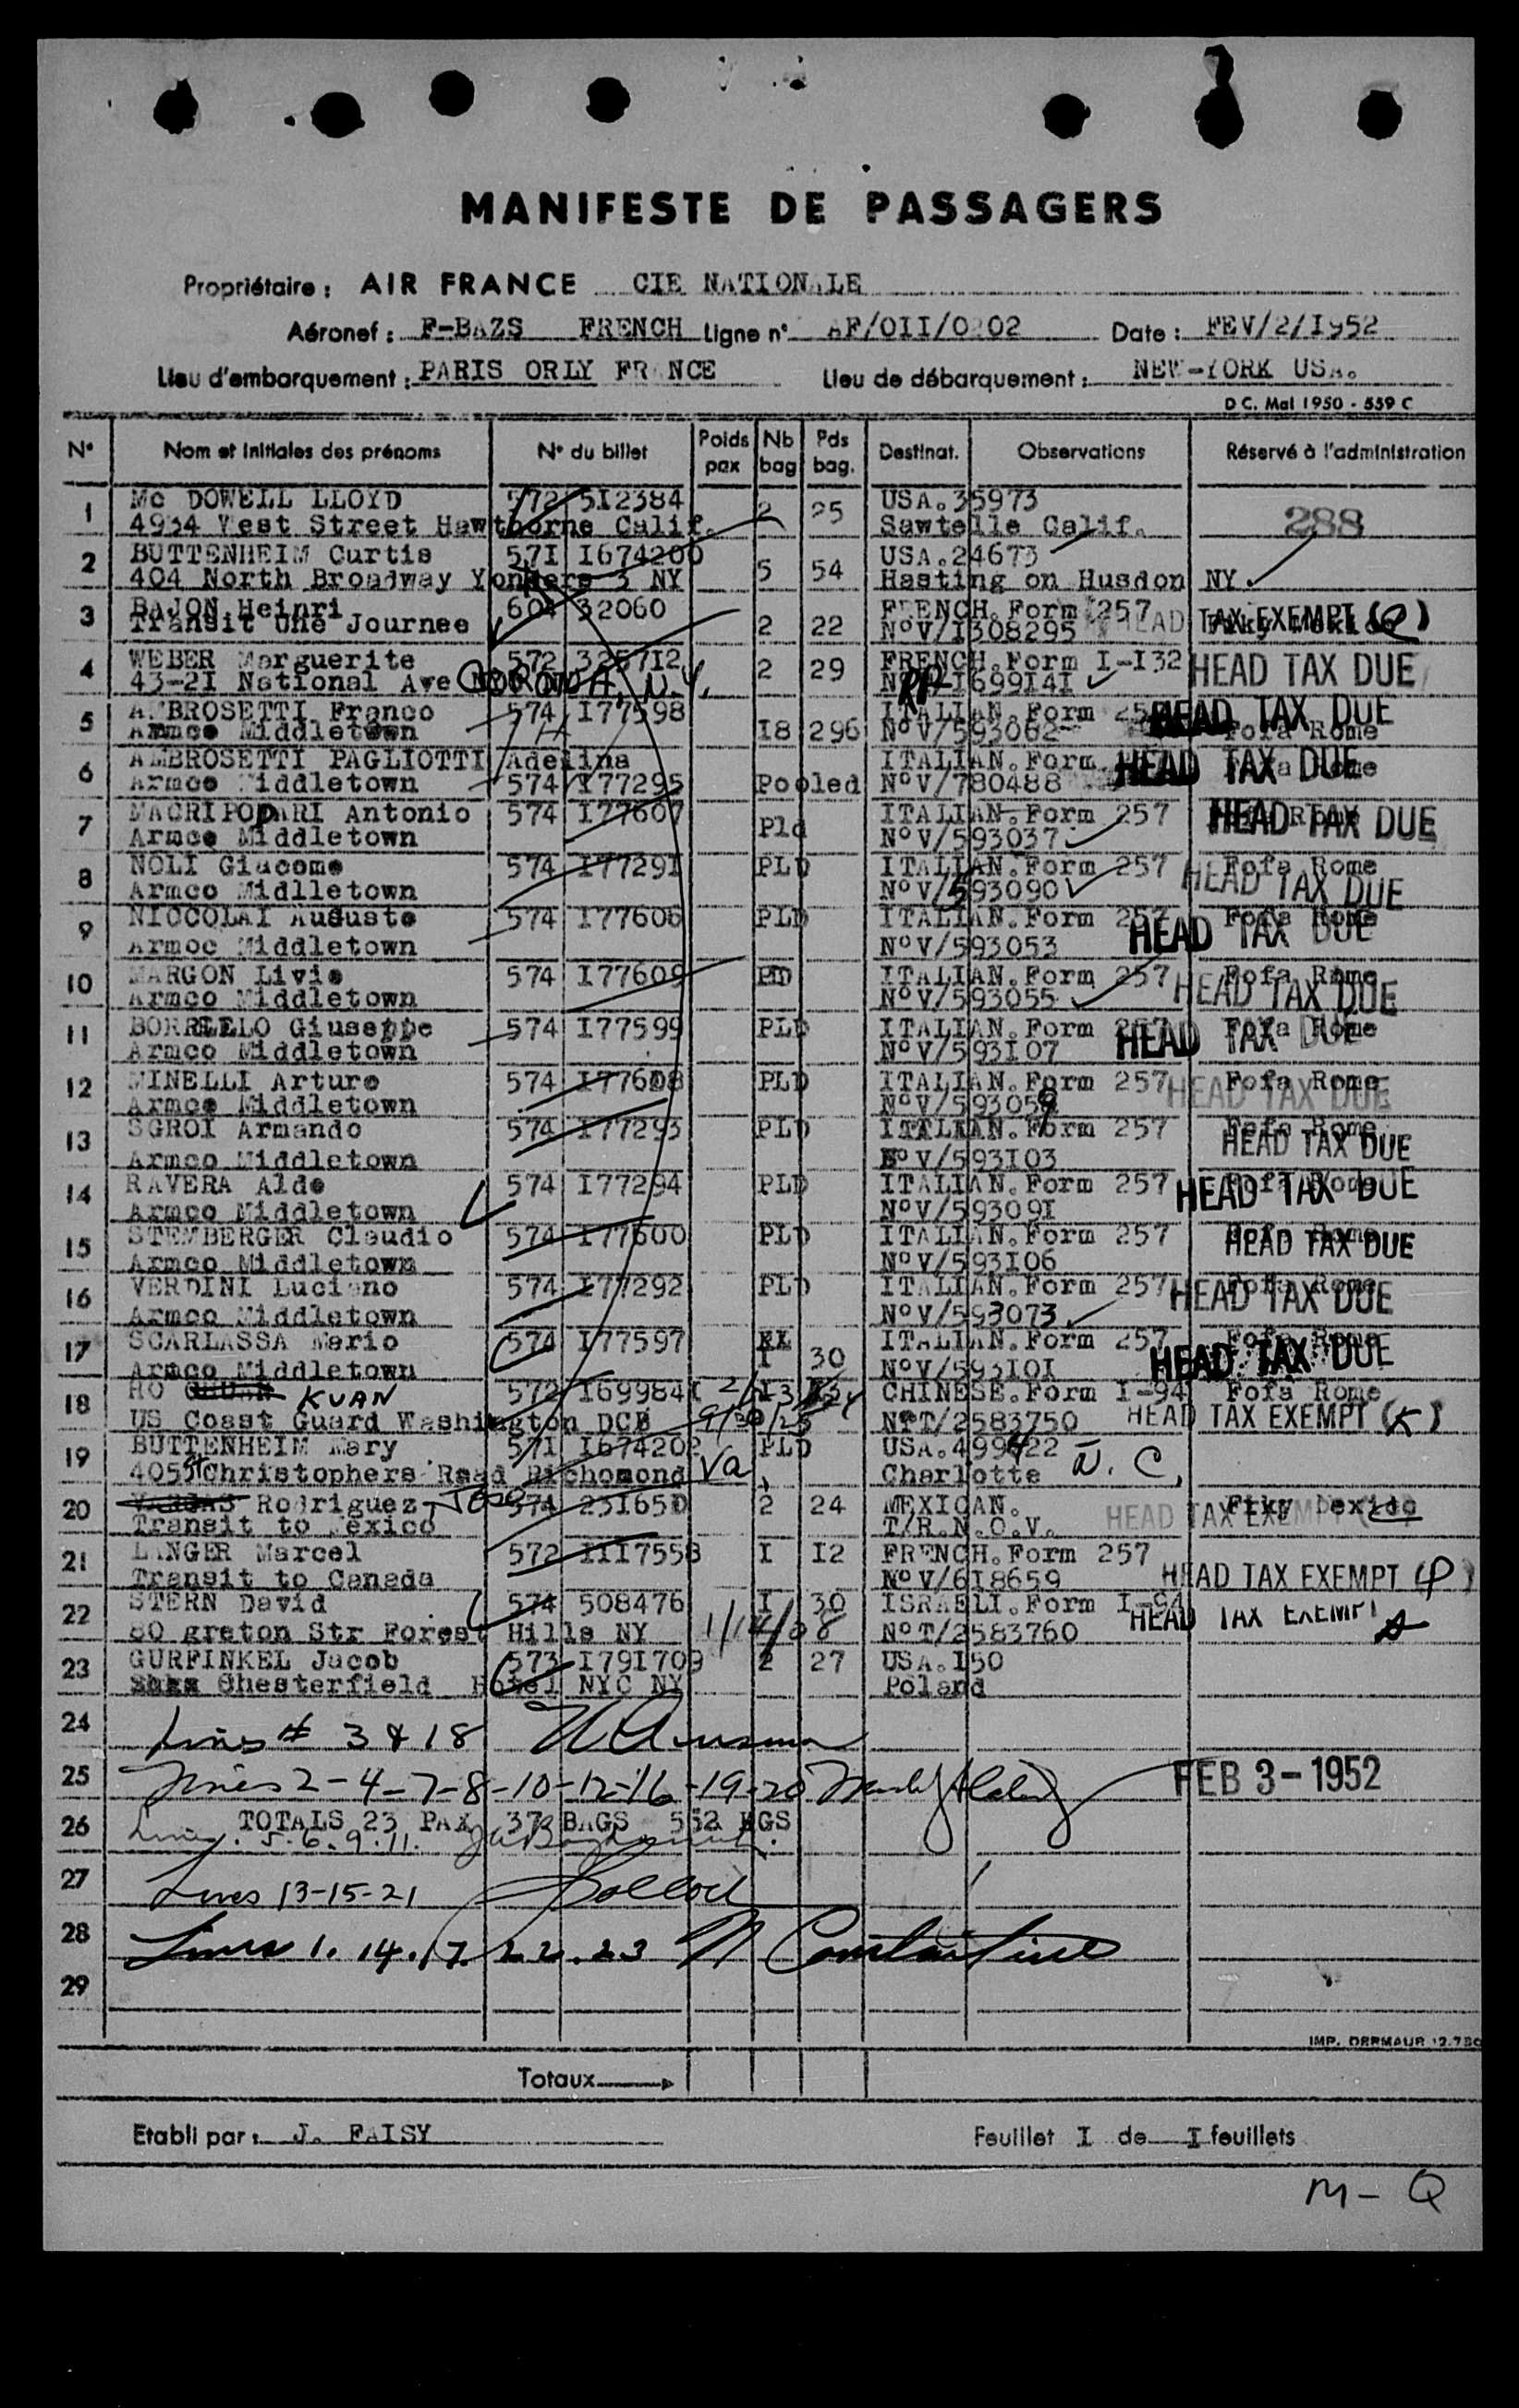 MANIFESTE DE PASSAGERS
Propriétaire : AIR FRANCE CIE NATIONALE
Aéronef : F-BAZS FRENCH Ligne n° AF/OII/0202 Date : FEV/2/I952
Lieu d'embarquement : PARIS ORLY FRANCE Lieu de débarquement : NEW-YORK USA.
D C. Mai 1950 - 559 C
N° Nom et initiales des prénoms N° du billet Poids pax Nb bag Pds bag. Destinat. Observations Réservé à l'administration
1 Mc DOWELL LLOYD 572 5I2384 2 25 USA.35973
4934 West Street Hawthorne Calif. Sawtelle Calif. 288
2 BUTTENHEIM Curtis 57I I674200 5 54 USA.24673
404 North Broadway Yonkers 3 NY Hasting on Husdon NY
3 BAJON Heinri 604 32060 2 22 FRENCH.Form 257
Transit Une Journee N°V/I308295 HEAD TAX EXEMPT (e)
4 WEBER Marguerite 572 325712 2 29 FRENCH.Form I-I32 HEAD TAX DUE
43-2I National Ave CORONA, N.Y. RP-I699I4I
5 AMBROSETTI Franco 574 I77598 I8 296 ITALIAN.Form HEAD TAX DUE
Armco Middletown N°V/593062 Fofa Rome
6 AMBROSETTI PAGLIOTTI Adelina ITALIAN.Form HEAD TAX DUE
Armco Middletown 574 I77295 Pooled N°V/780488
7 MACRIPODARI Antonio 574 I77607 Pld ITALIAN.Form 257 HEAD TAX DUE
Armco Middletown N°V/593037
8 NOLI Giacomo 574 I7729I PLD ITALIAN.Form 257 Fofa Rome
Armco Midlletown N°V/593090 HEAD TAX DUE
9 NICCOLAI Auguste 574 I77606 PLD ITALIAN.Form 257 Fofa Rome
Armco Middletown N°V/593053 HEAD TAX DUE
10 MARGON Livio 574 I77609 PD ITALIAN.Form 257 Fofa Rome
Armco Middletown N°V/593055 HEAD TAX DUE
11 BORRELLO Giuseppe 574 I77599 PLD ITALIAN.Form 257 Fofa Rome
Armco Middletown N°V/593I07 HEAD TAX DUE
12 MINELLI Arturo 574 I77608 PLD ITALIAN.Form 257 Fofa Rome
Armco Middletown N°V/593059 HEAD TAX DUE
13 SGROI Armando 574 I77293 PLD ITALIAN.Form 257 Fofa Rome
Armco Middletown N°V/593I03 HEAD TAX DUE
14 RAVERA Aldo 574 I77294 PLD ITALIAN.Form 257 Fofa Rome
Armco Middletown N°V/59309I HEAD TAX DUE
15 STEMBERGER Claudio 574 I77600 PLD ITALIAN.Form 257 Fofa Rome
Armco Middletown N°V/593I06 HEAD TAX DUE
16 VERDINI Luciano 574 I77292 PLD ITALIAN.Form 257 Fofa Rome
Armco Middletown N°V/593073 HEAD TAX DUE
17 SCARLASSA Mario 574 I77597 I 30 ITALIAN.Form 257 Fofa Rome
Armco Middletown N°V/593I0I HEAD TAX DUE
18 HO KUAN 572 I69984I CHINESE.Form I-94 Fofa Rome
US Coast Guard Washington DCE 9/30/25 N°T/2583750 HEAD TAX EXEMPT (K)
19 BUTTENHEIM Mary 57I I674202 PLD USA.499422
405 St Christophers Road Richomond Va, Charlotte N. C,
20 VARGAS Rodriguez Jose 574 23I65D 2 24 MEXICAN.
Transit to Mexico T/R.N.O.V. HEAD TAX EXEMPT
21 LANGER Marcel 572 III7558 I I2 FRENCH.Form 257
Transit to Canada N°V/6I8659 HEAD TAX EXEMPT (P)
22 STERN David 574 508476 I 30 ISRAELI.Form I-94
80 greton Str Forest Hills NY 1/14/08 N°T/2583760 HEAD TAX EXEMPT
23 GURFINKEL Jacob 573 I79I709 2 27 USA.I50
Chesterfield Hotel NYC NY Poland
24 Lines # 3 & 18
25 Lines 2-4-7-8-10-12-16-19-20 FEB 3-1952
26 TOTALS 23 PAX 37 BAGS 552 KGS
Lines. 5. 6. 9. 11.
27 Lines 13-15-21
28 Lines 1. 14. 17. 22. 23 N Constantine
29
IMP. DERMAUR
Totaux
Etabli par : J. FAISY Feuillet I de I feuillets
M - Q